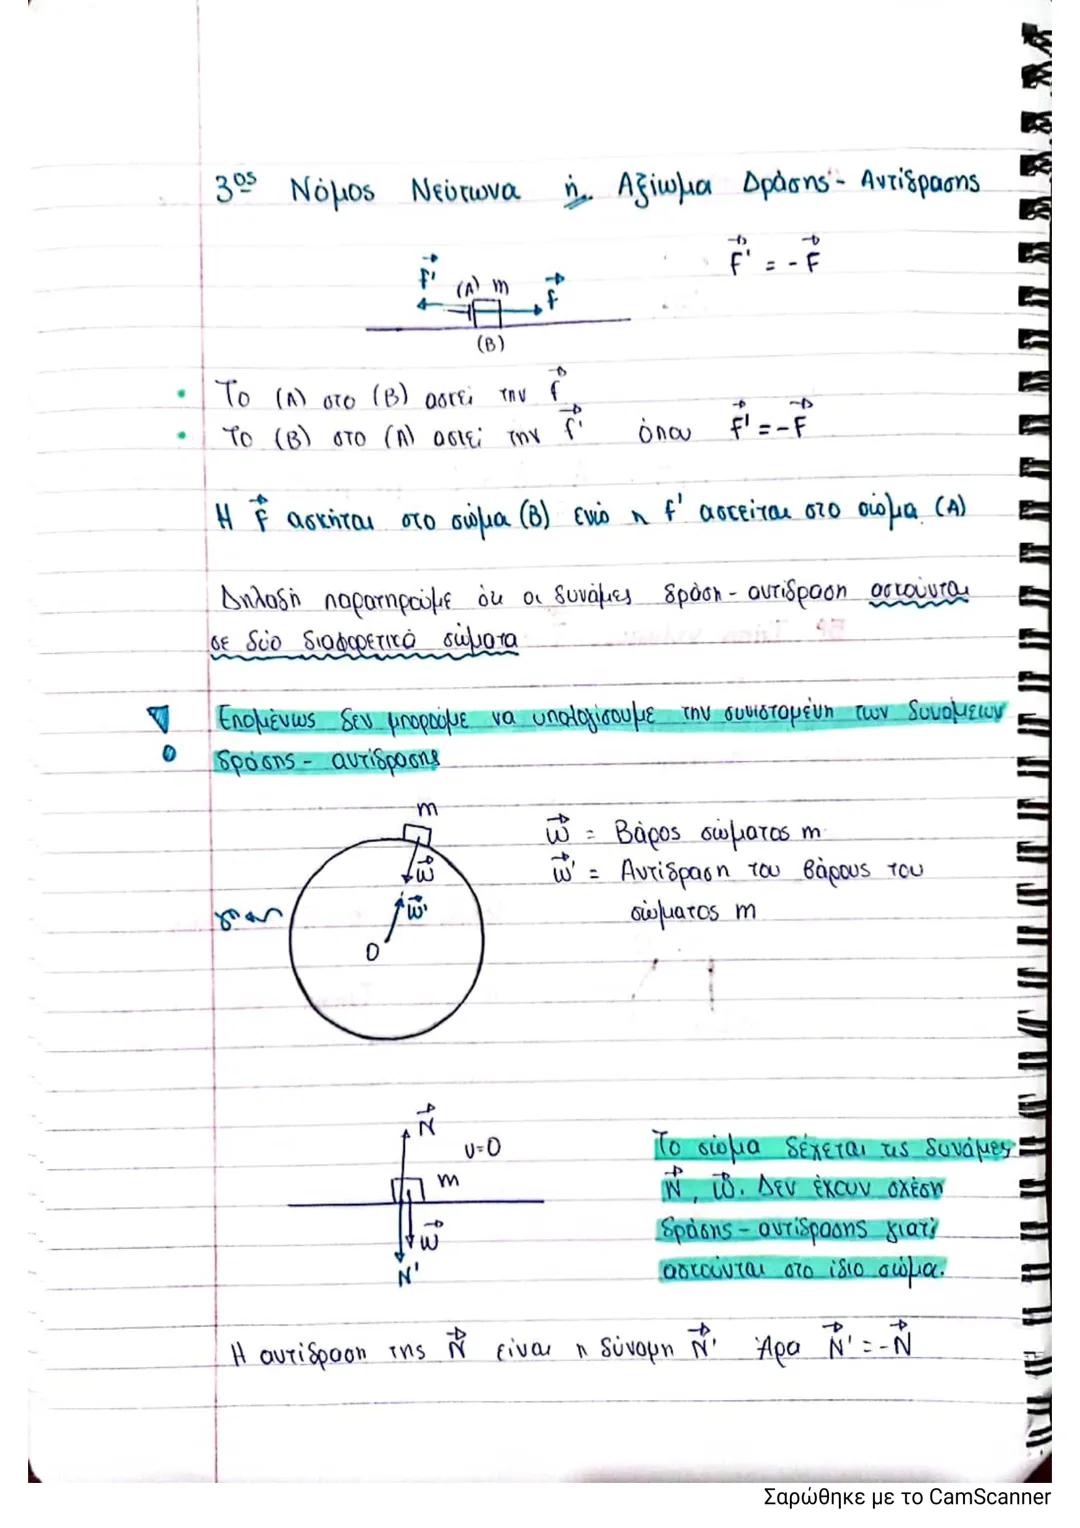 3ος Νόμος Νεύτωνα ή Αξίωμα Δράσης - Αντίδρασης
F' = - F
F' (A) m F
(B)
Το (A) στο (B) ασκεί την F
Το (B) στο (A) ασκεί την F' όπου F' = - F
Η F ασκήται στο σώμα (B) ενώ η F' ασκείται στο σώμα (A)
Δηλαδή παρατηρούμε ότι οι δυνάμεις δράση - αντίδραση ασκούνται
σε δύο διαφορετικά σώματα
! Επομένως δεν μπορούμε να υπολογίσουμε την συνισταμένη των δυνάμεων
δράσης - αντίδρασης
m
w = Βάρος σώματος m
w
w' = Αντίδραση του βάρους του
σώματος m
w'
γη
O
N
υ=0
m
w
N'
Το σώμα δέχεται τις δυνάμεις
N, w. Δεν έχουν σχέση
δράσης - αντίδρασης γιατί
ασκούνται στο ίδιο σώμα.
Η αντίδραση της N είναι η δύναμη N' Άρα N' = - N
Σαρώθηκε με το CamScanner